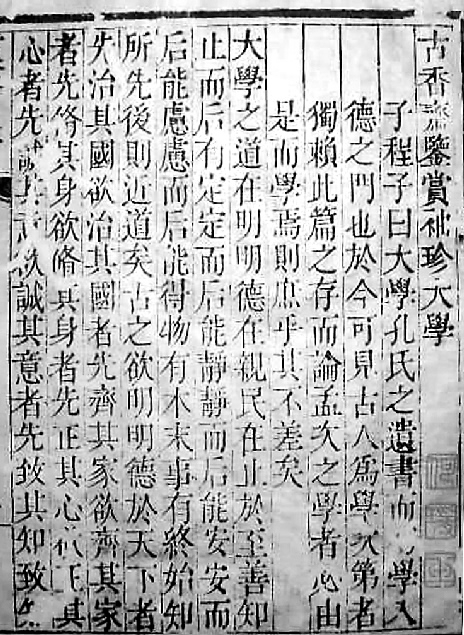 古香齋鑒賞袖珍大學
子程子曰大學孔氏之遺書而學入
德之門也於今可見古人爲學次第者
獨賴此篇之存而論孟次之學者必由
是而學焉則庶乎其不差矣
大學之道在明明德在親民在止於至善知
止而后有定定而后能靜靜而后能安安而
后能慮慮而后能得物有本末事有終始知
所先後則近道矣古之欲明明德於天下者
先治其國欲治其國者先齊其家欲齊其家
者先脩其身欲脩其身者先正其心欲正其
心者先誠其意欲誠其意者先致其知致